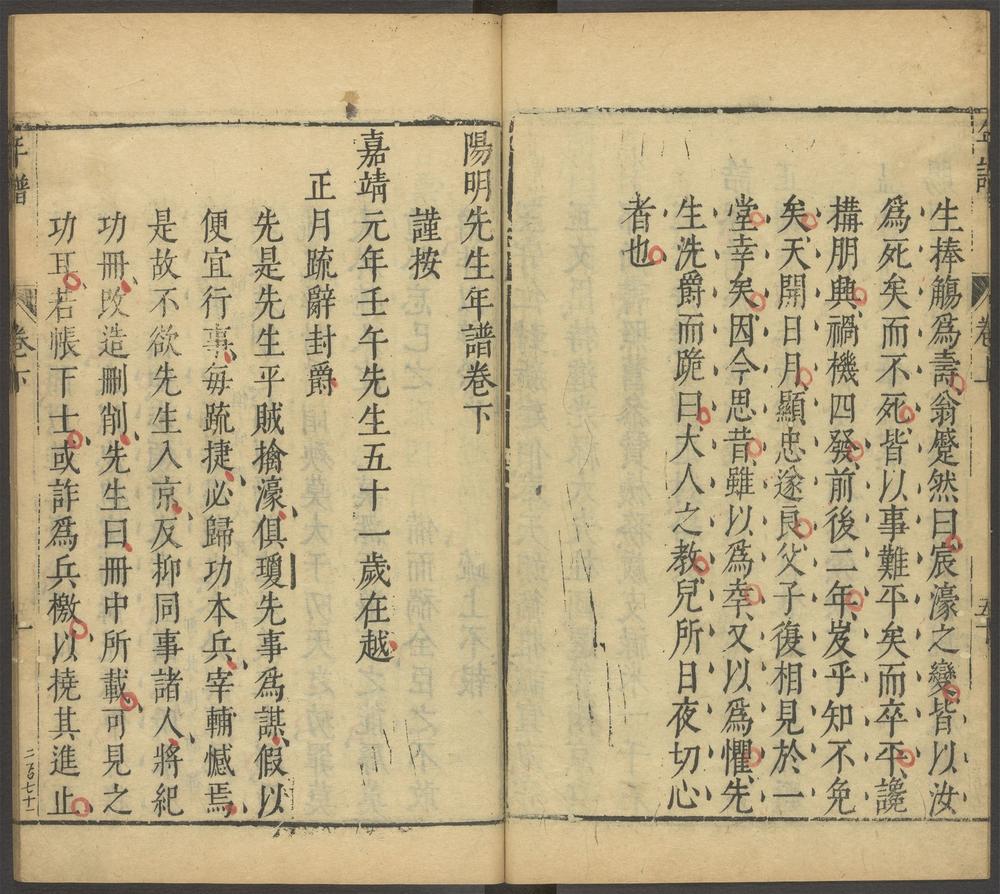 生捧觴爲壽翁蹙然曰宸濠之變皆以汝
爲死矣而不死皆以事難平矣而卒平讒
搆朋興禍機四發前後二年岌乎知不免
矣天開日月顯忠遂良父子復相見於一
堂幸矣因今思昔雖以爲幸又以爲懼先
生洗爵而跪曰大人之教兒所日夜切心
者也
年譜
卷上
陽明先生年譜卷下
謹按
嘉靖元年壬午先生五十一歲在越
正月疏辭封爵
先是先生平賊擒濠俱瓊先事爲謀假以
便宜行事每疏捷必歸功本兵宰輔憾焉
是故不欲先生入京反抑同事諸人將紀
功冊改造刪削先生曰冊中所載可見之
功耳若帳下士或詐爲兵檄以撓其進止
年譜
卷下
一
二百七十